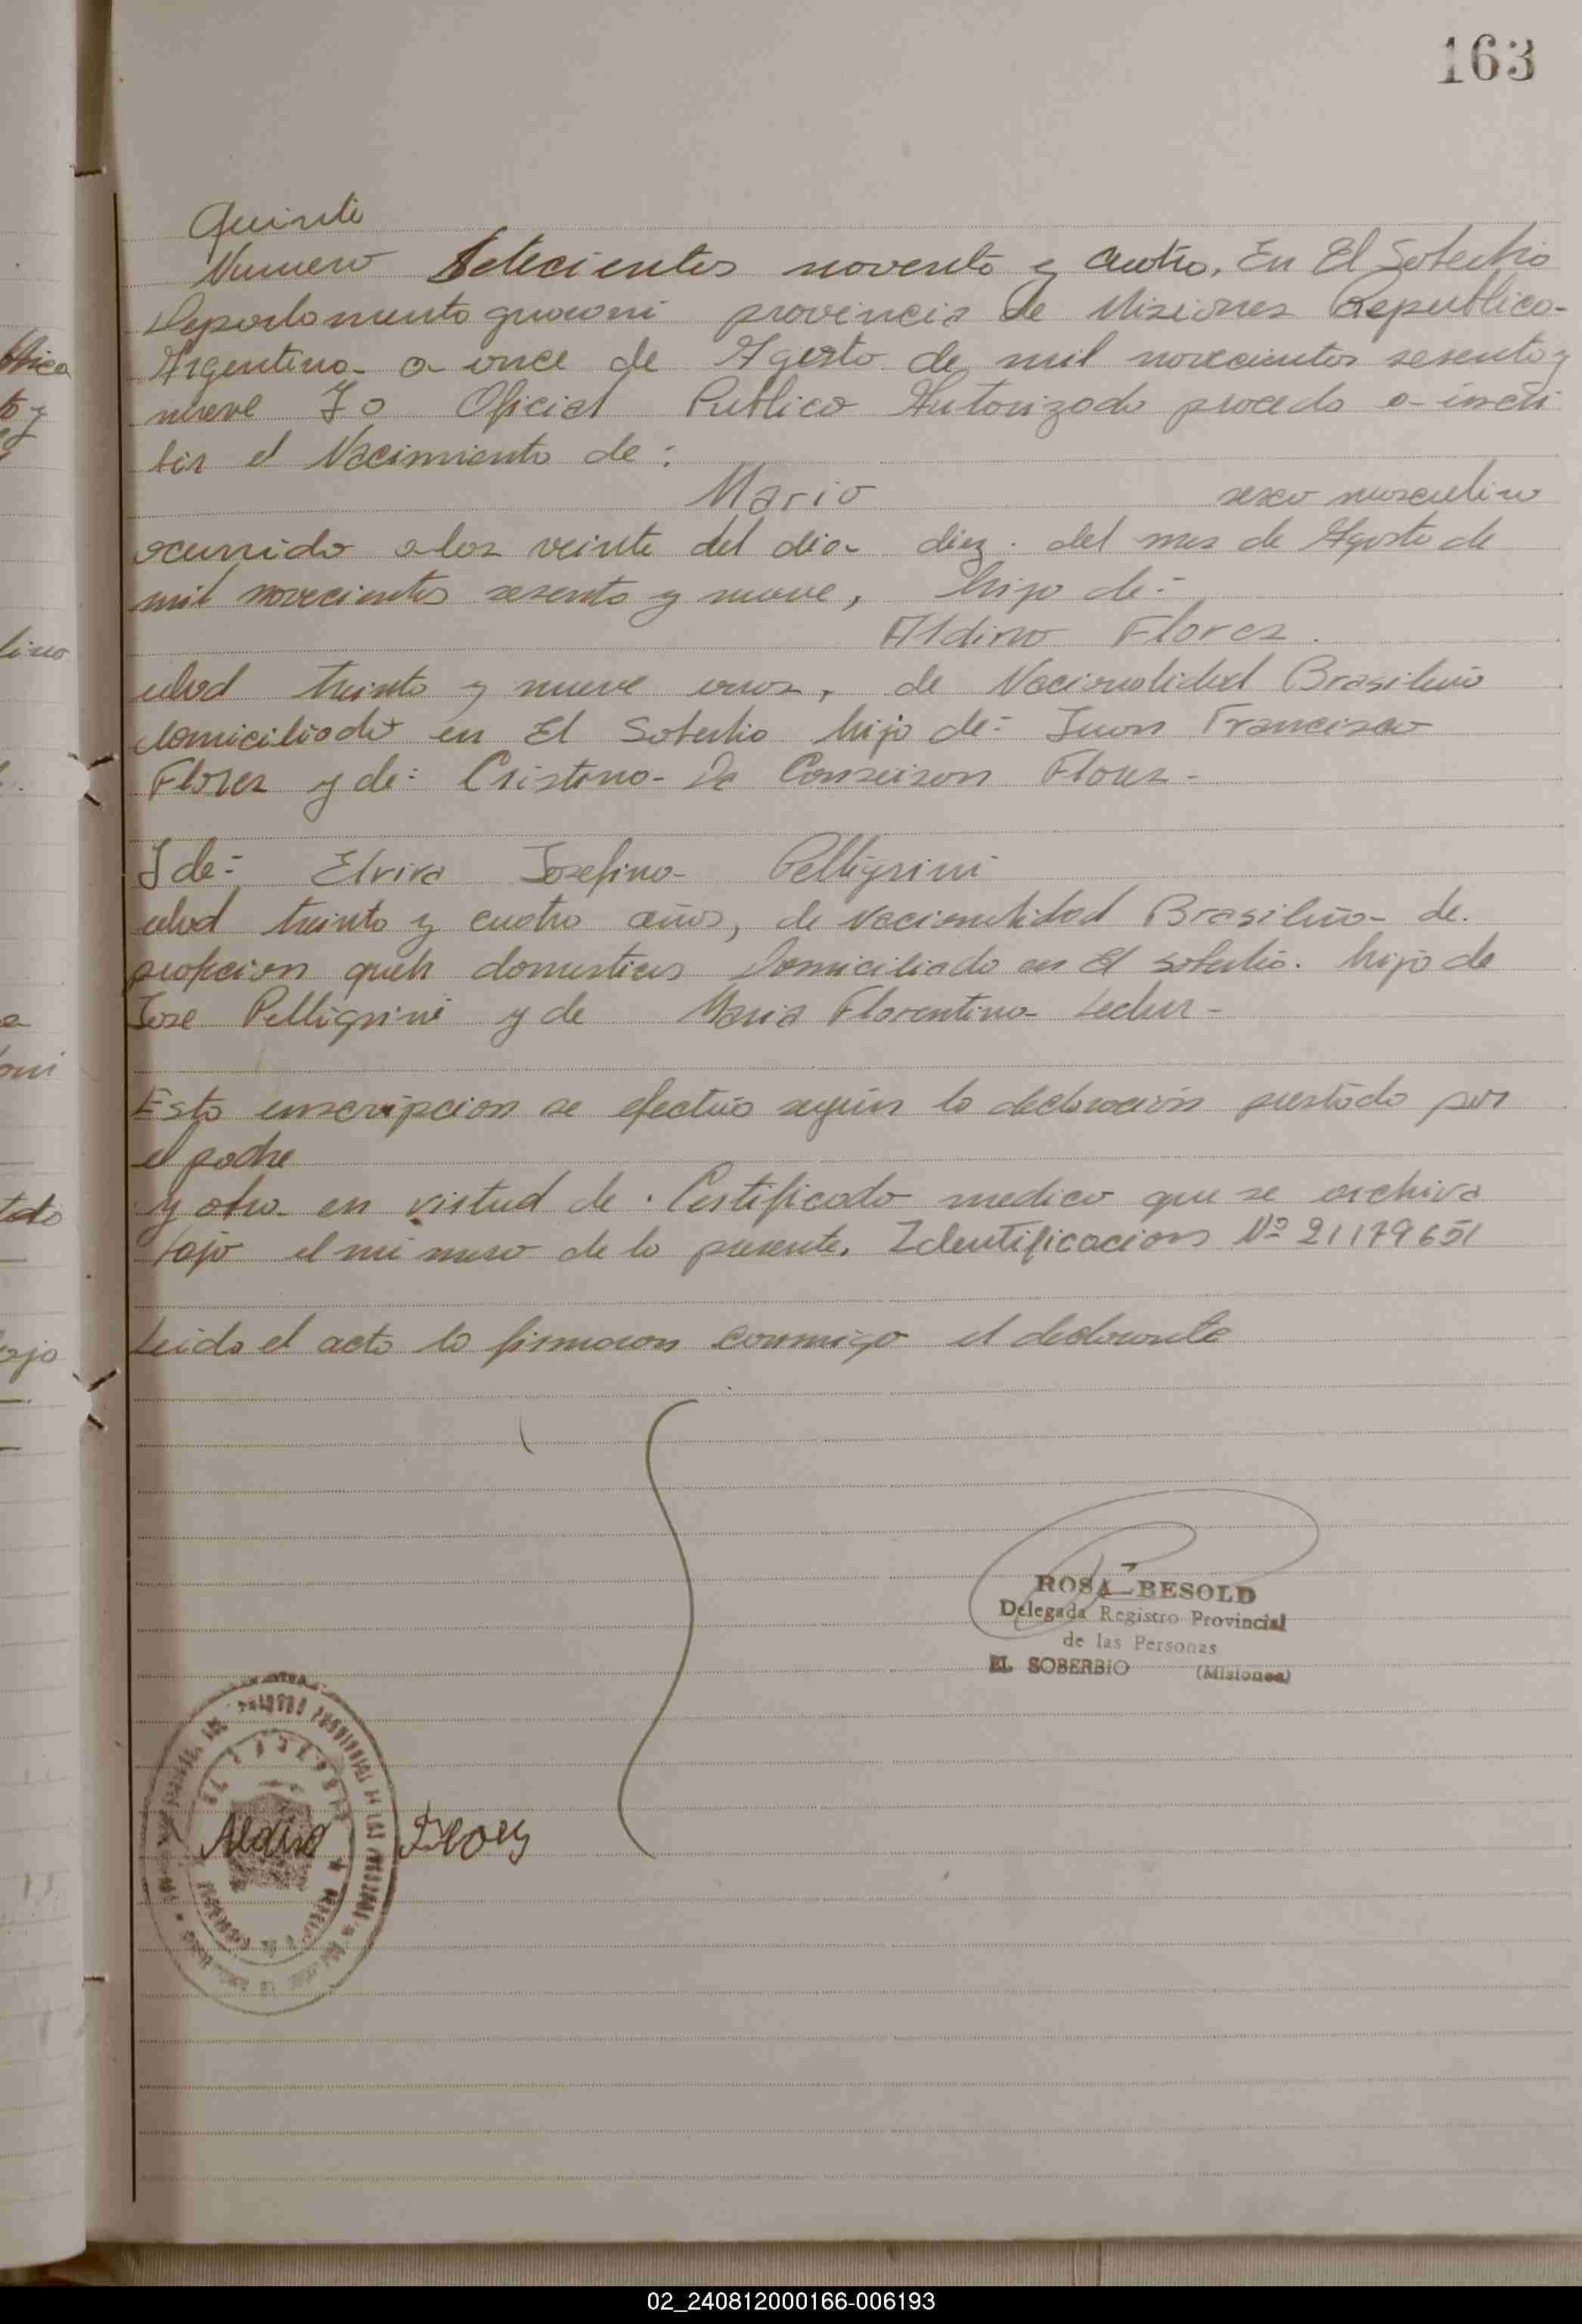 163
Quinto
Numero Setecientos noventa y cuatro. En El Soberbio
Departamento guarani provincia de Misiones Republica-
Argentina- a once de Agosto de mil novecientos sesenta y
nueve Yo Oficial Publico Autorizado procedo a inscri
bir el Nacimiento de:
Mario sexo masculino
ocurrido a las veinte del dia diez. del mes de Agosto de
mil novecientos sesenta y nueve, hijo de:-
Aldino Flores.
edad treinta y nueve años, de Nacionalidad Brasileño
domiciliado en El Soberbio hijo de:- Juan Francisco
Flores y de: Cristina- Da Conseison Flores-
Y de:- Elvira Josefina- Pelligrini
edad treinta y cuatro años, de Nacionalidad Brasileña- de.
profecion domesticos Domiciliada en El soberbio. hija de
Jose Pelligrini y de Maria Florentina-
Esta enscripcion se efectua según la declaración prestada por
el padre
y obra en virtud de. Certificado medico que se archiva
bajo el numero de la presente. Identificacion Nº 21179651
Leida el acta la firmaron conmigo el declarante
ROSA BESOLD
Delegada Registro Provincial
de las Personas
EL SOBERBIO (Misiones)
Aldino Flores
02_240812000166-006193